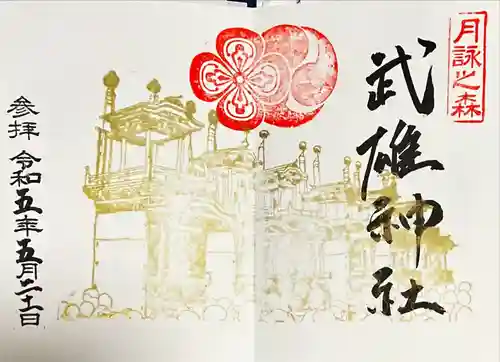 月詠之森
武雄神社
参拝 令和五年五月二十一日